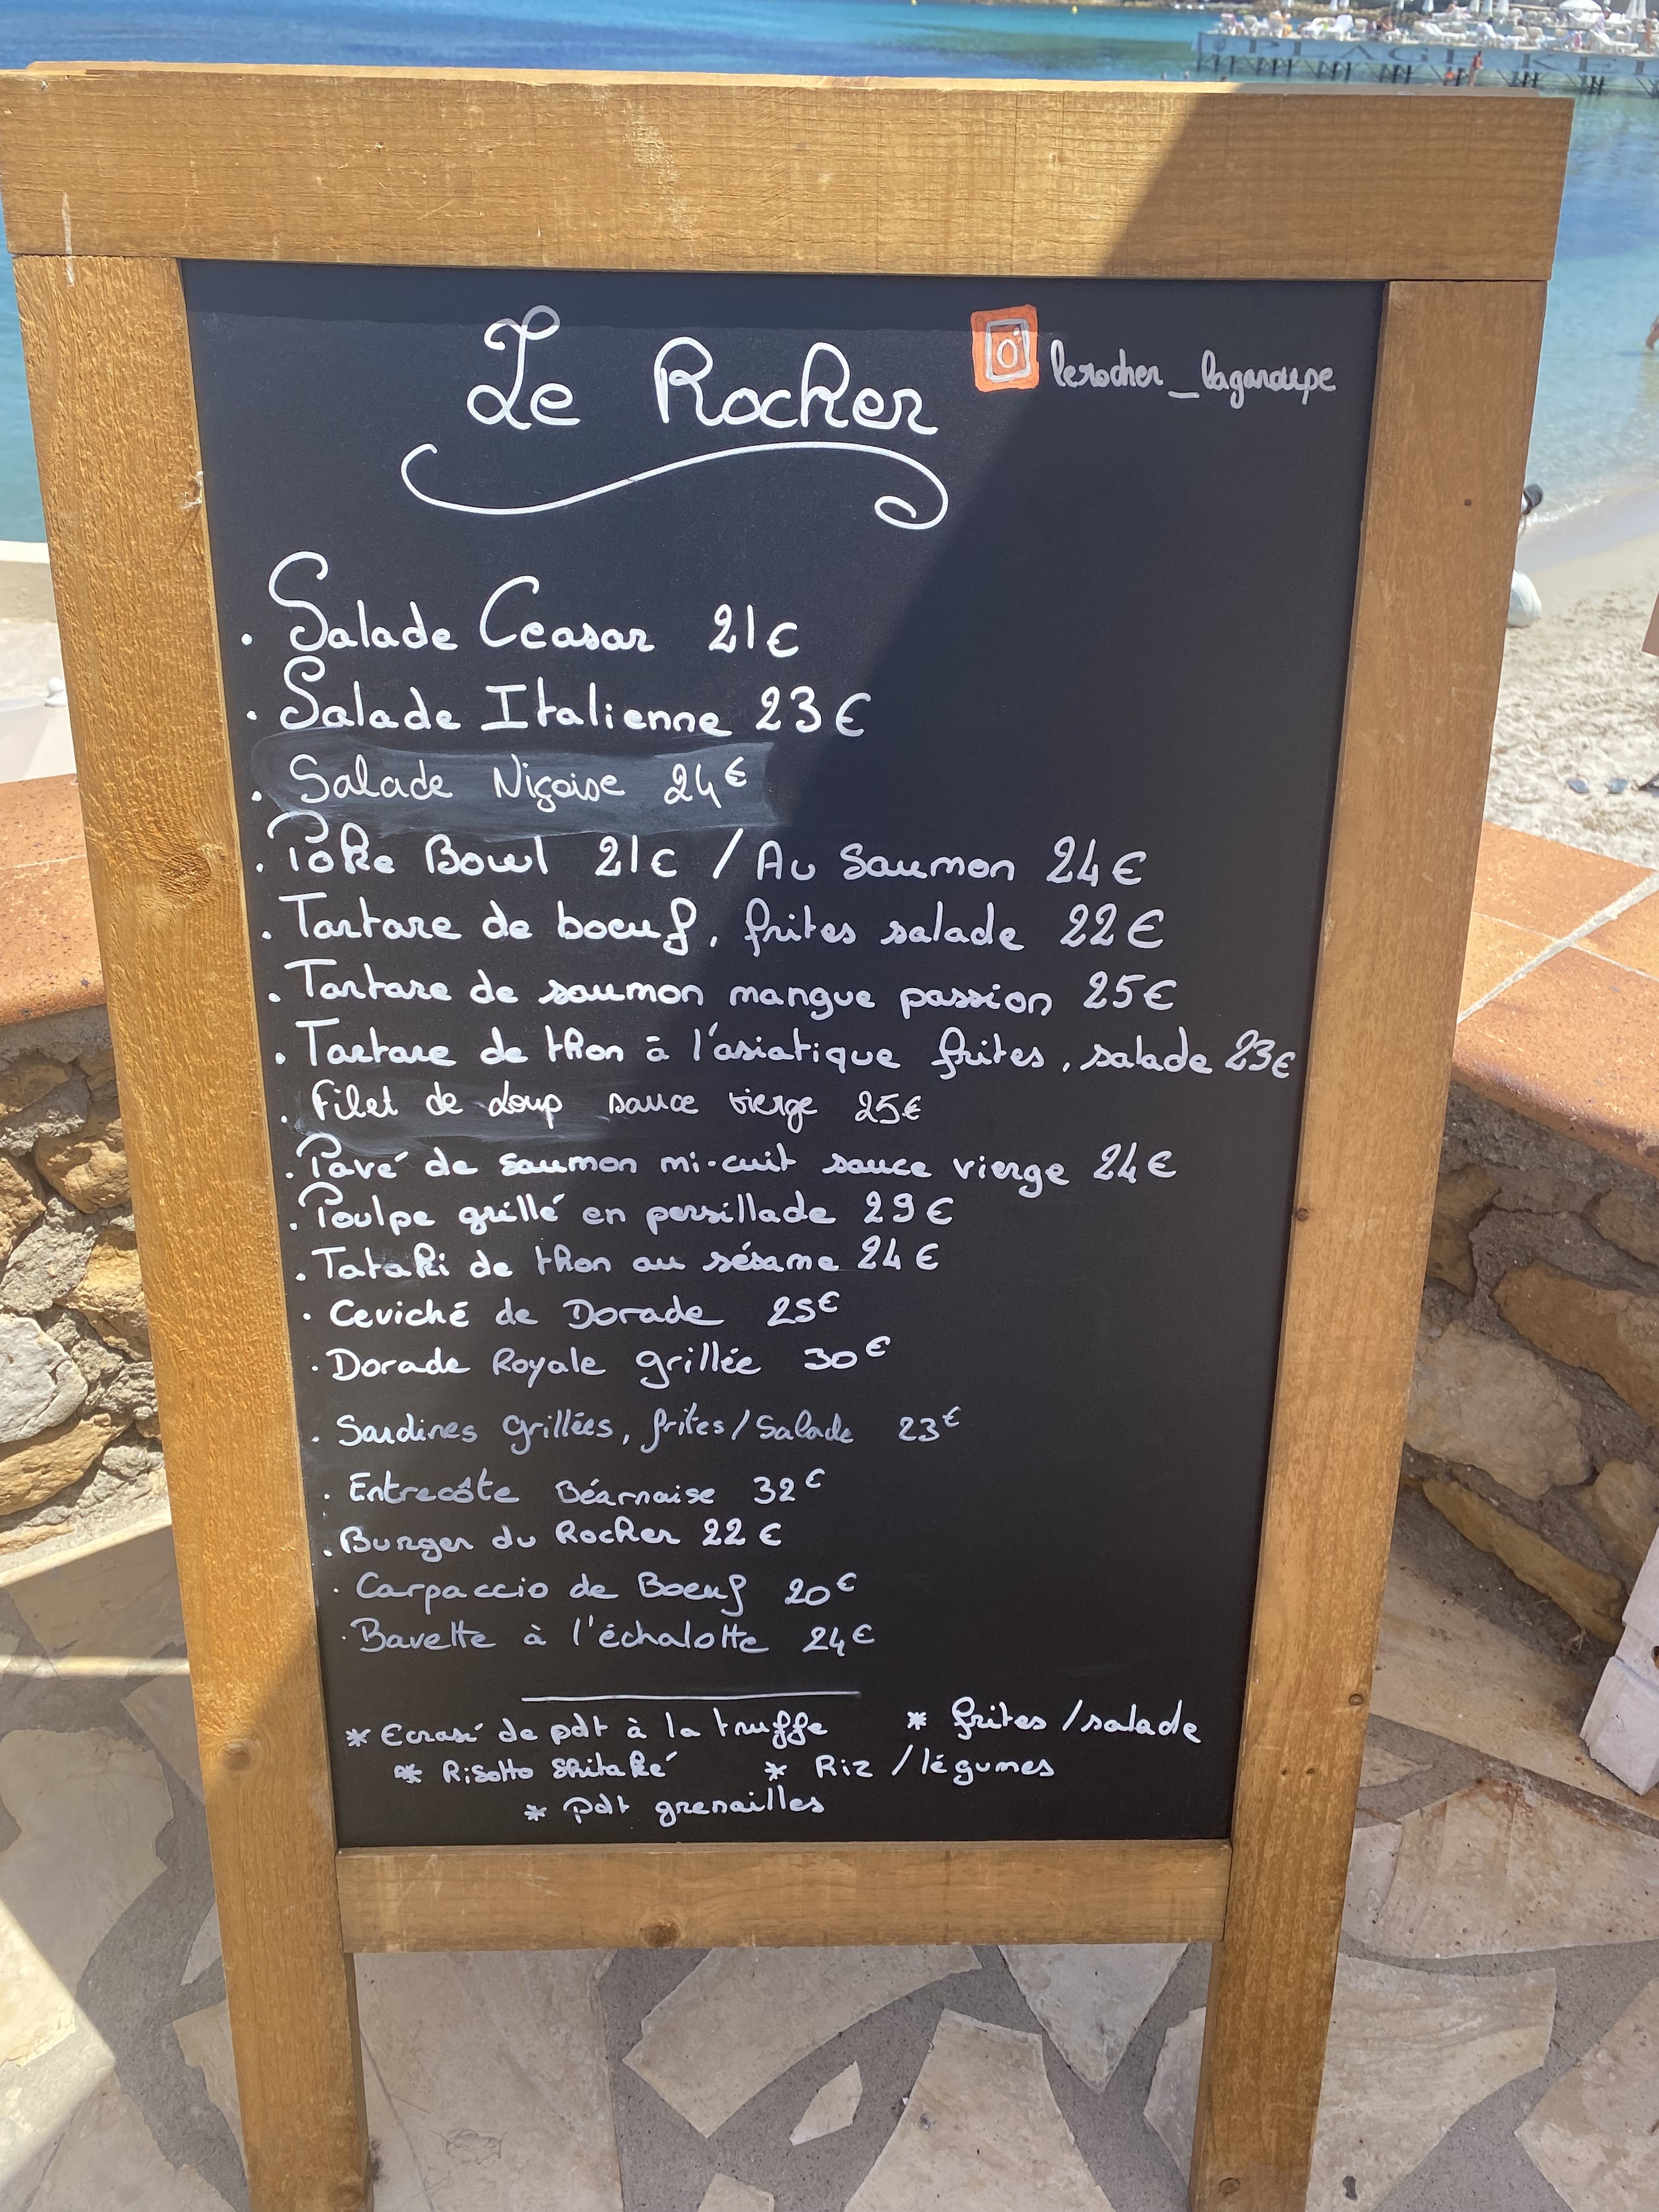 Le Rocher
lerocher_lagaroupe
. Salade Ceasar 21€
. Salade Italienne 23€
. Salade Niçoise 24€
. Poke Bowl 21€ / Au Saumon 24€
. Tartare de boeuf, frites salade 22€
. Tartare de saumon mangue passion 25€
. Tartare de thon à l'asiatique frites, salade 23€
. Filet de Loup sauce vierge 25€
. Pavé de saumon mi-cuit sauce vierge 24€
. Poulpe grillé en persillade 29€
. Tataki de thon au sésame 24€
. Ceviché de Dorade 25€
. Dorade Royale grillée 30€
. Sardines grillées, frites/Salade 23€
. Entrecôte Béarnaise 32€
. Burger du Rocher 22€
. Carpaccio de Boeuf 20€
. Bavette à l'échalotte 24€
* Ecrasé de pdt à la truffe * frites /salade
* Risotto Shitaké * Riz /légumes
* pdt grenailles